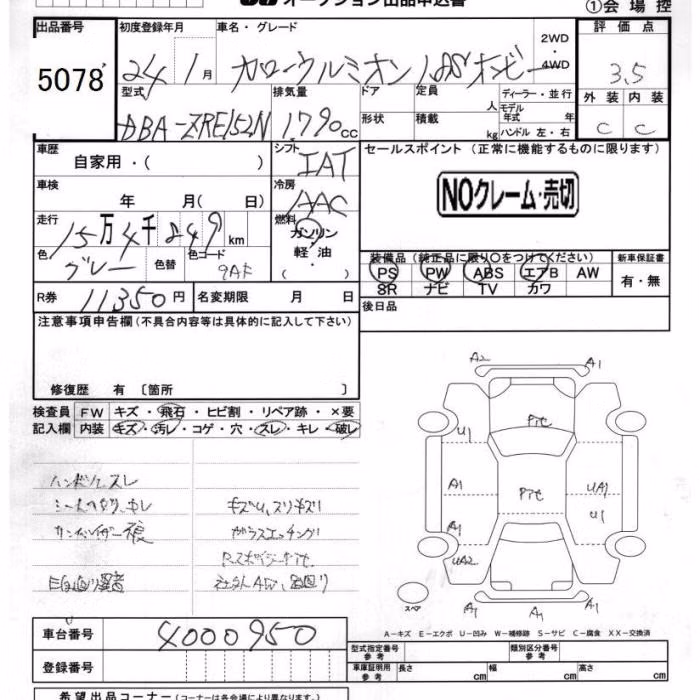 オークション出品申込書
①会場控
出品番号 初度登録年月 車名・グレード 評価点
5078 24年1月 カローラルミオン1.8S 2WD・4WD 3.5
型式 排気量 ドア 定員 人 ディーラー・並行 外装 内装
DBA-ZRE152N 1790cc 形状 積載 kg モデル年式 年 ハンドル 左・右 C C
車歴 自家用・( ) シフト IAT セールスポイント (正常に機能するものに限ります)
車検 年 月( 日) 冷房 AAC NOクレーム・売切
走行 15万4千249km 燃料 ガソリン
軽・油
( )
装備品(純正品に限り○をつけてください) 新車保証書
色 グレー 色替 色コード PS PW ABS エアB AW 有・無
SR ナビ TV カワ
R券 11350円 名変期限 月 日 後日品
注意事項申告欄(不具合内容等は具体的に記入して下さい)
修復歴 有〔箇所 〕
検査員 FW キズ・飛石・ヒビ割・リペア跡・×要
記入欄 内装 キズ・汚レ・コゲ・穴・スレ・キレ・破レ
A2 A1
U1 Pれ
A1 Pれ UA1
U1
A1
UA2
スペア A1 A1 A1
ハンドルスレ
キズU、スリキズ
ガラスエッチング
A－キズ E－エクボ U－凹み W－補修跡 S－サビ C－腐食 XX－交換済
車台番号 4000950 型式指定番号 参考 類別区分番号 参考
登録番号 車庫証明用 参考 長さ cm 幅 cm 高さ cm
希望出品コーナー(コーナーは各会場により異なります。)